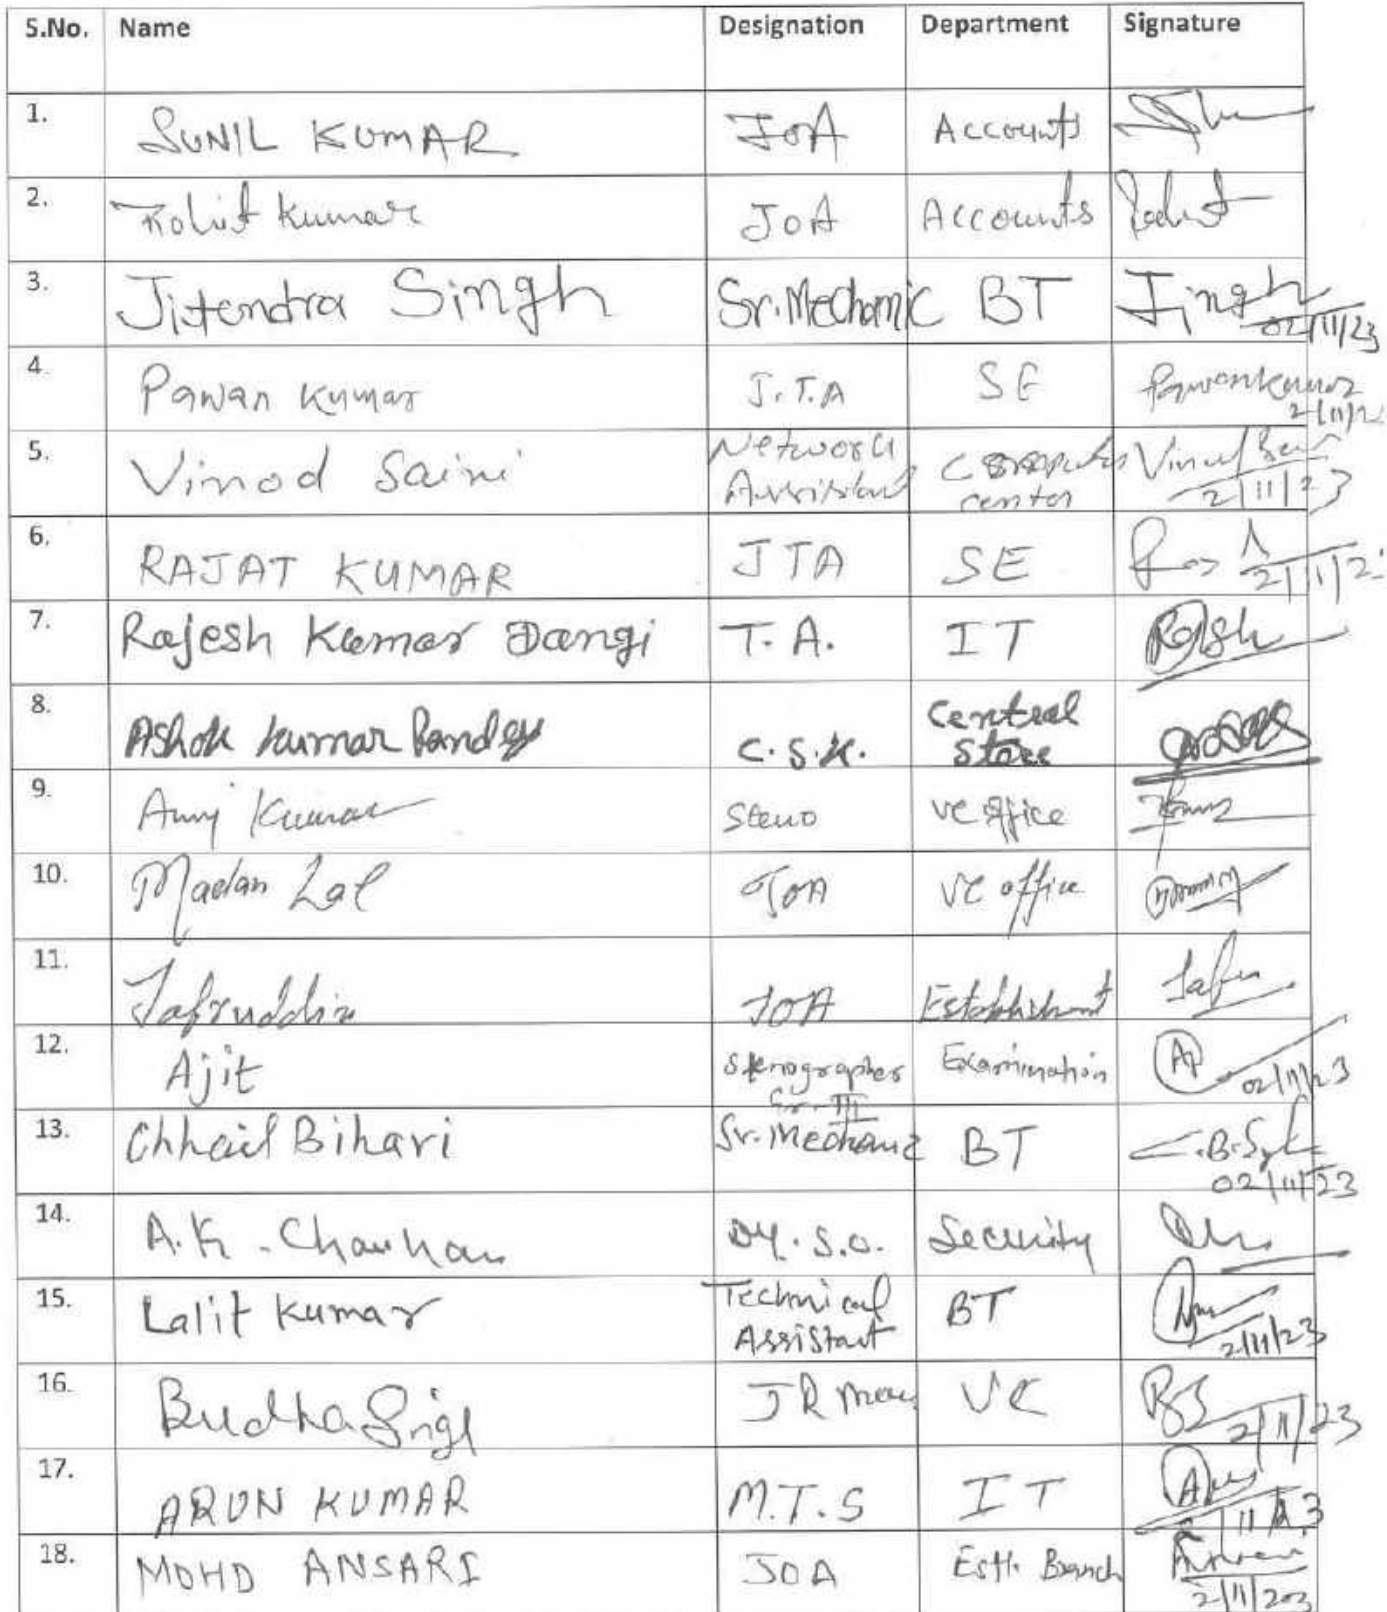 S.No. Name Designation Department Signature
1. SUNIL KUMAR JOA Accounts
2. Rohit Kumar JOA Accounts Rohit
3. Jitendra Singh Sr.Mechanic BT Jingh
02/11/23
4. Pawan Kumar J.T.A SE Pawankumar
2/11/2
5. Vinod Saini Network Computer Vinod
Assistant center 2/11/23
6. RAJAT KUMAR JTA SE
2/11/2
7. Rajesh Kumar Dangi T.A. IT
8. Ashok Kumar Pandey C.S.K. Central
Store
9. Anuj Kumar Steno VC office
10. Madan Lal JOA VC office
11. Jafruddin JOA Establishment Jafru
12. Ajit Stenographer Examination
Gr. III 02/11/23
13. Chhail Bihari Sr. Mechanic BT C.B.
02/11/23
14. A.K. Chauhan DY. S.O. Security
15. Lalit Kumar Technical BT
Assistant 2/11/23
16. Budha Singh JR VC BS
2/11/23
17. ARUN KUMAR M.T.S IT
18. MOHD ANSARI JOA Estt. Branch
2/11/203